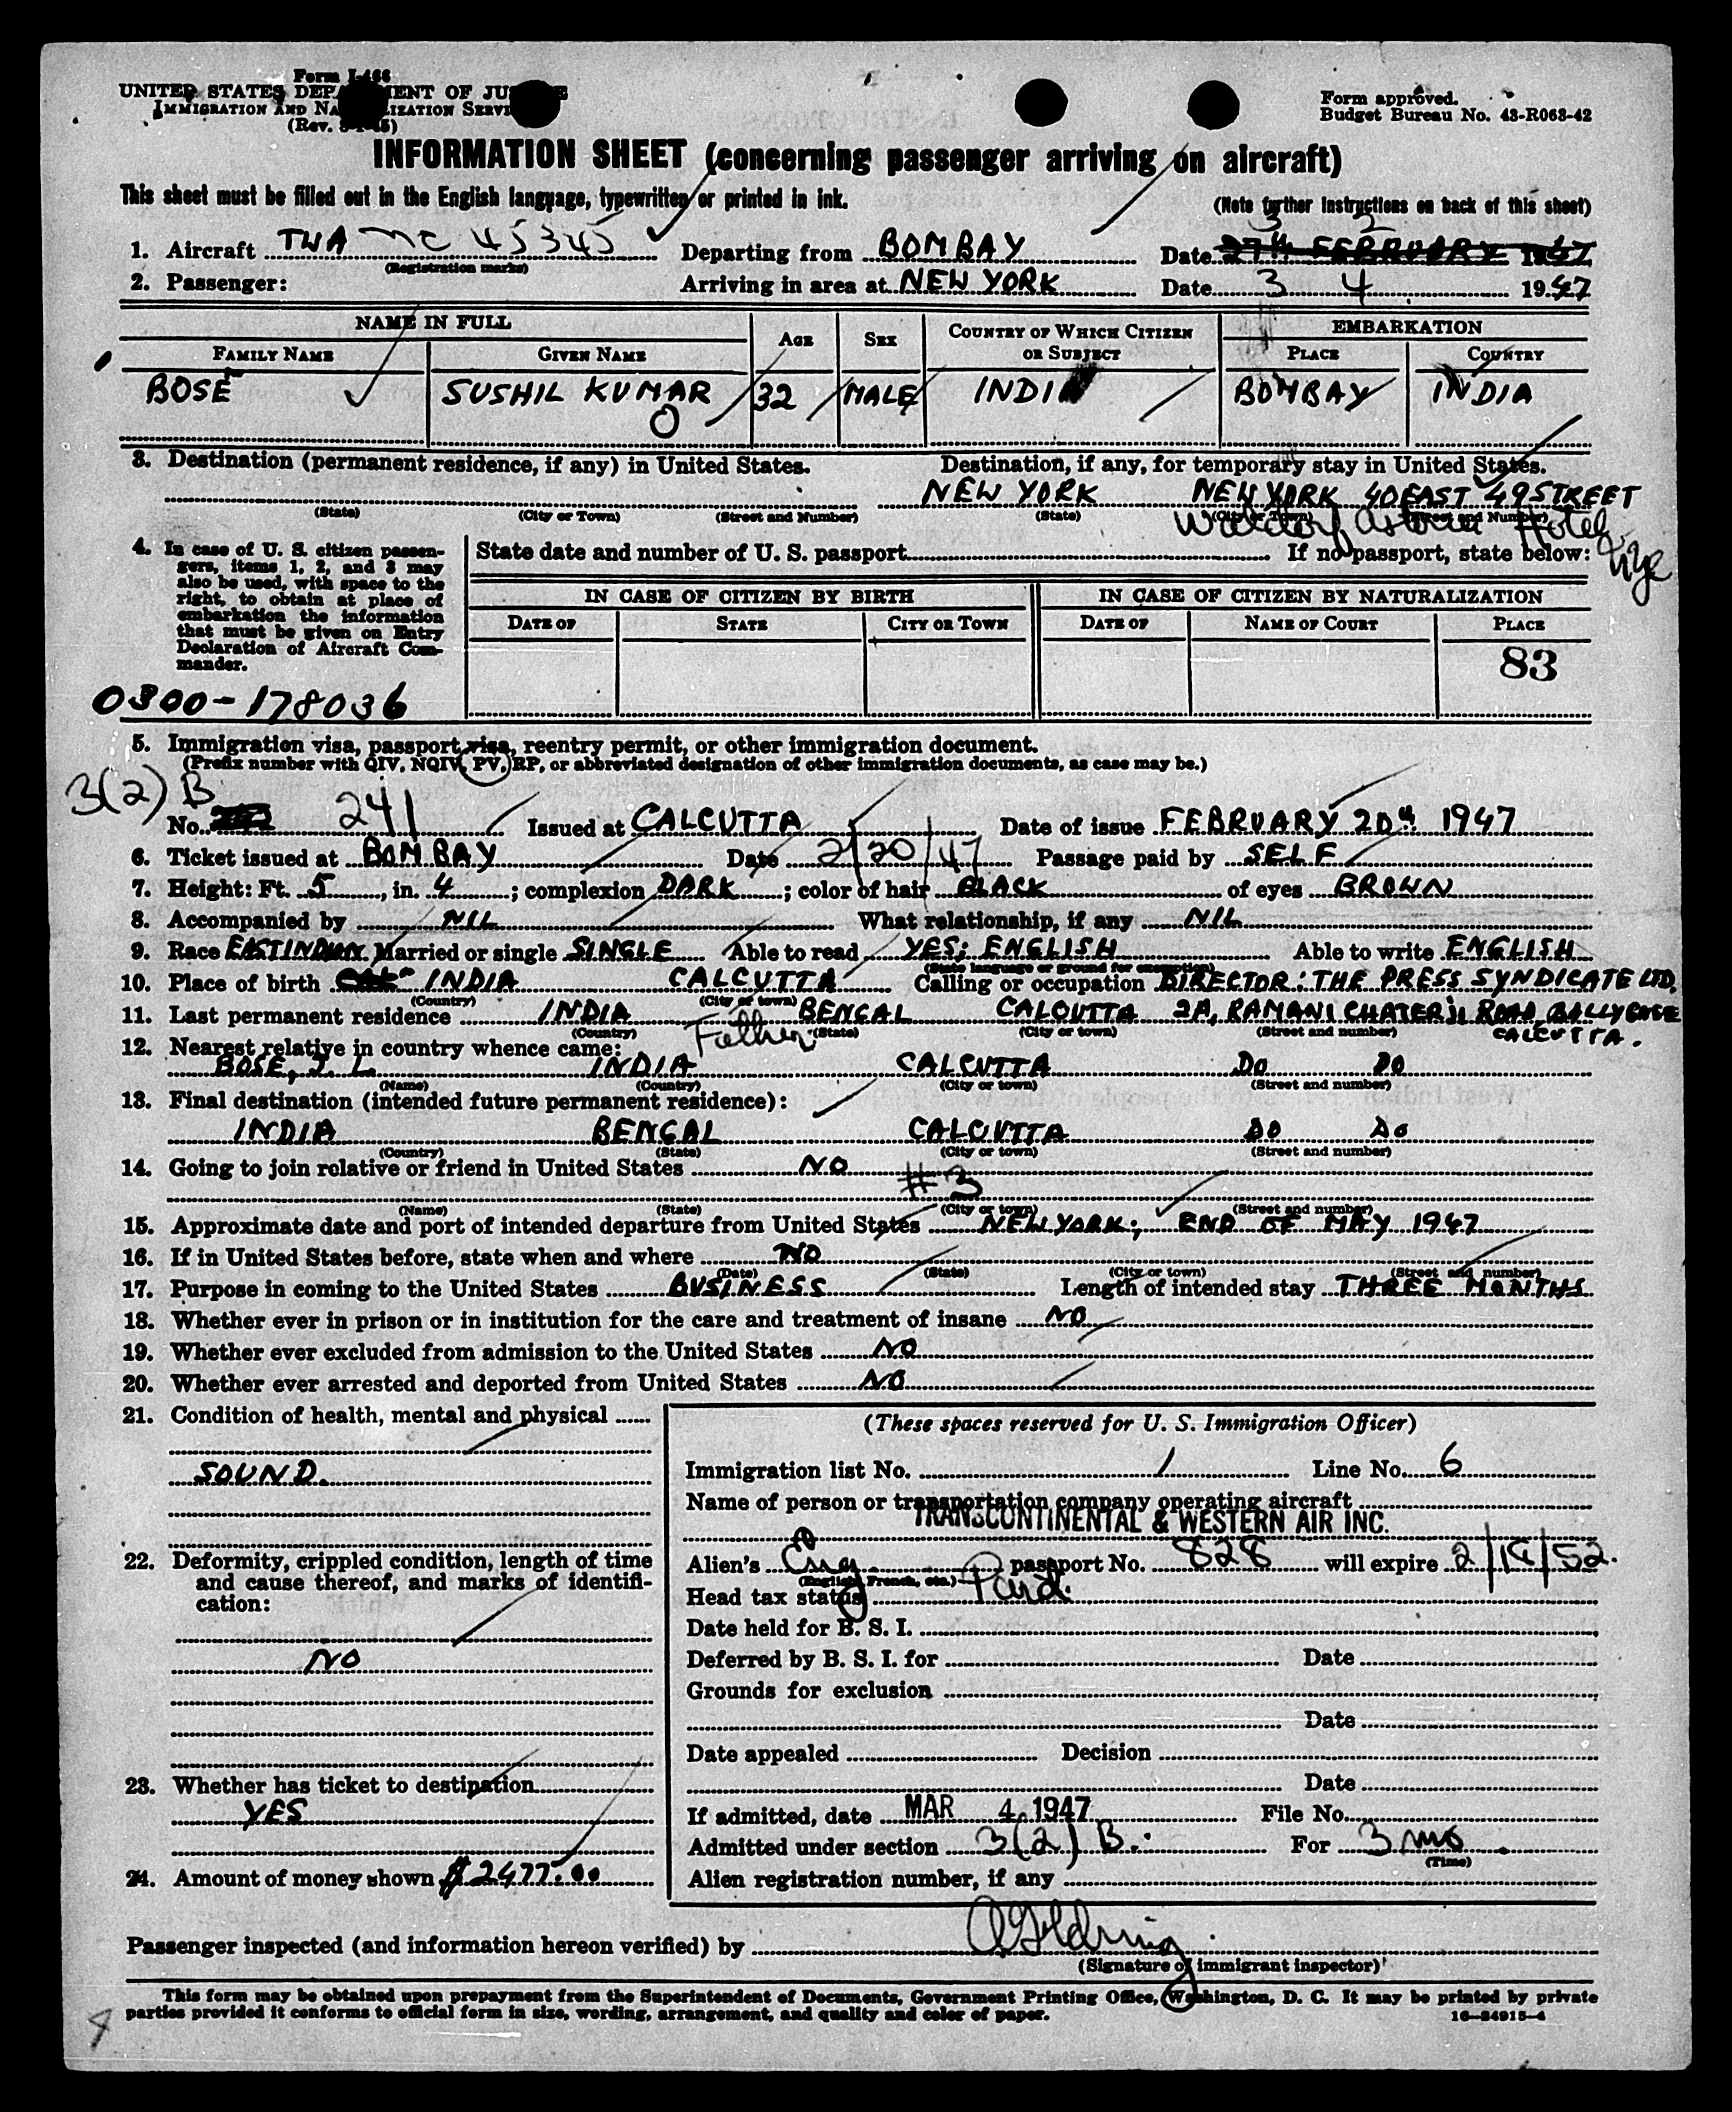 Form I-466
UNITED STATES DEPARTMENT OF JUSTICE
IMMIGRATION AND NATURALIZATION SERVICE
(Rev. 45)
Form approved.
Budget Bureau No. 43-R063-42
INFORMATION SHEET (concerning passenger arriving on aircraft)
This sheet must be filled out in the English language, typewritten or printed in ink.
(Note further instructions on back of this sheet)
3 2
1. Aircraft TWA NC 45345 Departing from BOMBAY Date 27th FEBRUARY 1947
(Registration marks)
2. Passenger: Arriving in area at NEW YORK Date 3 4 1947
NAME IN FULL AGE SEX COUNTRY OF WHICH CITIZEN OR SUBJECT EMBARKATION
FAMILY NAME GIVEN NAME PLACE COUNTRY
BOSE SUSHIL KUMAR 32 MALE INDIA BOMBAY INDIA
0
3. Destination (permanent residence, if any) in United States. Destination, if any, for temporary stay in United States.
NEW YORK NEW YORK 40 EAST 49 STREET
(State) (City or Town) (Street and Number) (State) (City or Town) (Street and Number)
Waldorf Astoria Hotel
NYC
4. In case of U. S. citizen passengers, items 1, 2, and 3 may also be used, with space to the right, to obtain at place of embarkation the information that must be given on Entry Declaration of Aircraft Commander.
State date and number of U. S. passport If no passport, state below:
IN CASE OF CITIZEN BY BIRTH IN CASE OF CITIZEN BY NATURALIZATION
DATE OF STATE CITY OR TOWN DATE OF NAME OF COURT PLACE
83
0300-178036
5. Immigration visa, passport visa, reentry permit, or other immigration document.
(Prefix number with QIV, NQIV, PV, RP, or abbreviated designation of other immigration documents, as case may be.)
3(2) B
No. 241 Issued at CALCUTTA Date of issue FEBRUARY 20th 1947
6. Ticket issued at BOMBAY Date 2/20/47 Passage paid by SELF
7. Height: Ft. 5, in. 4; complexion DARK; color of hair BLACK of eyes BROWN
8. Accompanied by NIL What relationship, if any NIL
9. Race EAST INDIAN Married or single SINGLE Able to read YES; ENGLISH Able to write ENGLISH
(State language or ground for exemption)
10. Place of birth INDIA CALCUTTA Calling or occupation DIRECTOR: THE PRESS SYNDICATE LTD.
(Country) (City or town)
11. Last permanent residence INDIA BENGAL CALCUTTA 2A, RAMANI CHATERJI ROAD, BALLYGUNGE
(Country) (State) (City or town) (Street and number)
CALCUTTA.
12. Nearest relative in country whence came: Father
BOSE, J. L. INDIA CALCUTTA DO DO
(Name) (Country) (City or town) (Street and number)
13. Final destination (intended future permanent residence):
INDIA BENGAL CALCUTTA DO DO
(Country) (State) (City or town) (Street and number)
14. Going to join relative or friend in United States NO
#3
(Name) (State) (City or town) (Street and number)
15. Approximate date and port of intended departure from United States NEW YORK; END OF MAY 1947
16. If in United States before, state when and where NO
(Date) (State) (City or town) (Street and number)
17. Purpose in coming to the United States BUSINESS Length of intended stay THREE MONTHS
18. Whether ever in prison or in institution for the care and treatment of insane NO
19. Whether ever excluded from admission to the United States NO
20. Whether ever arrested and deported from United States NO
21. Condition of health, mental and physical
SOUND.
22. Deformity, crippled condition, length of time
and cause thereof, and marks of identifi-
cation:
NO
23. Whether has ticket to destination
YES
24. Amount of money shown $2477.00
(These spaces reserved for U. S. Immigration Officer)
Immigration list No. 1 Line No. 6
Name of person or transportation company operating aircraft
TRANSCONTINENTAL & WESTERN AIR INC.
Alien's Eng passport No. 828 will expire 2/18/52.
(English, French, etc.)
Head tax status Paid.
Date held for B. S. I.
Deferred by B. S. I. for Date
Grounds for exclusion
Date
Date appealed Decision
Date
If admitted, date MAR 4 1947 File No.
Admitted under section 3(2) B. For 3 mos
(Time)
Alien registration number, if any
Passenger inspected (and information hereon verified) by
(Signature of immigrant inspector)
This form may be obtained upon prepayment from the Superintendent of Documents, Government Printing Office, Washington, D. C. It may be printed by private
parties provided it conforms to official form in size, wording, arrangement, and quality and color of paper.
16-24915-4